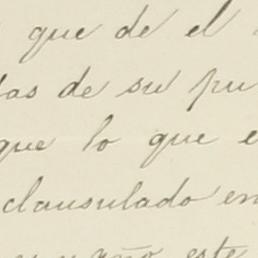 que de el
las de su pu
que lo que e
clausulado en
y año este